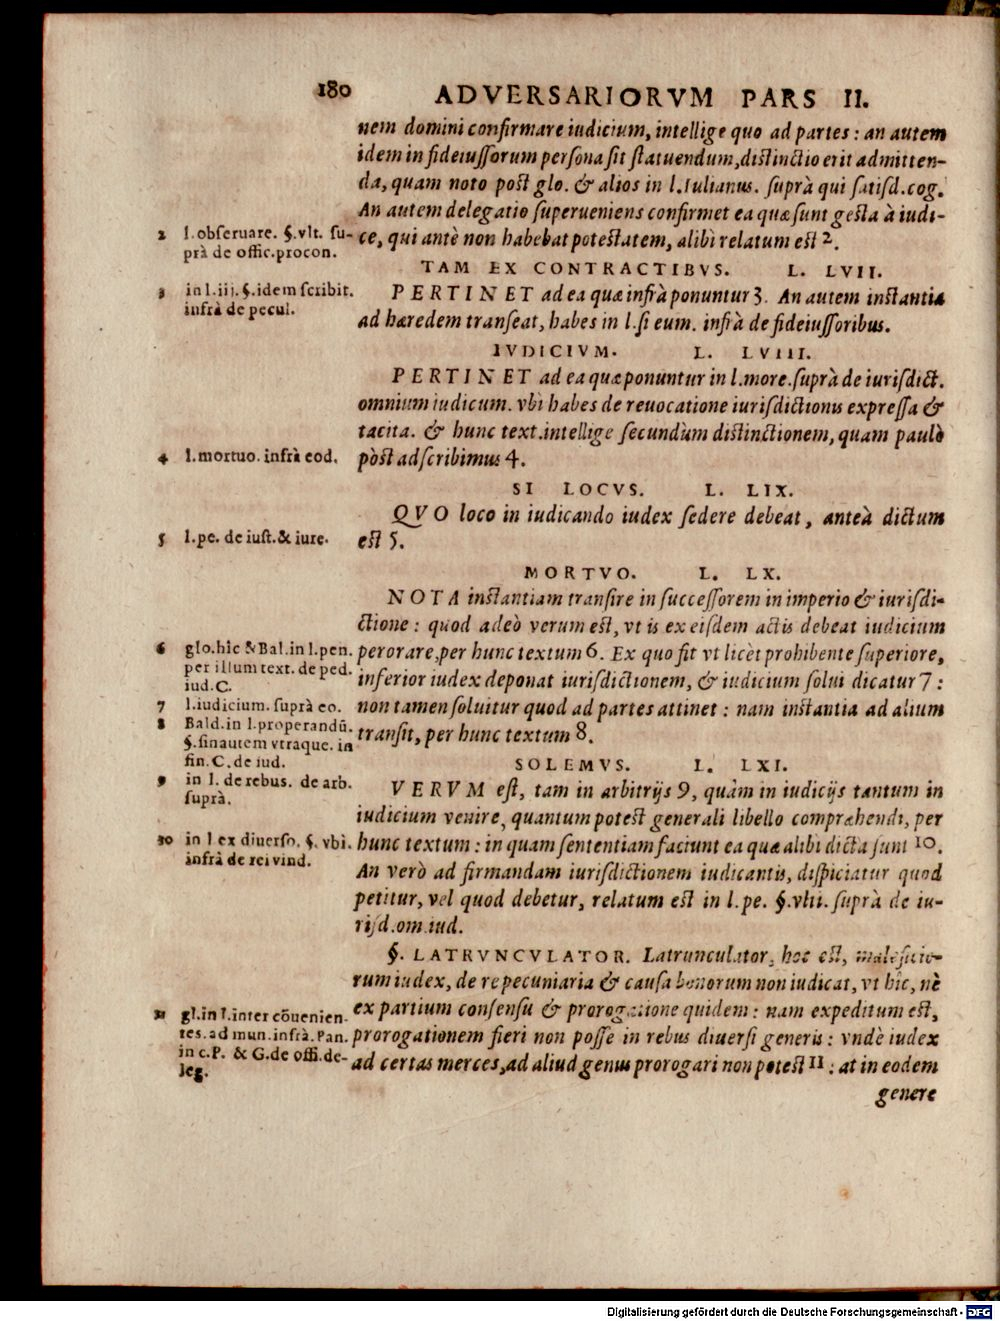 180 ADVERSARIORVM PARS II.
nem domini confirmare iudicium, intellige quo ad partes : an autem
idem in fideiussorum persona sit statuendum, distinctio erit admitten-
da, quam noto post glo. & alios in l. Iulianus. suprà qui satisd. cog.
An autem delegatio superueniens confirmet ea quæ sunt gesta à iudi-
ce, qui antè non habebat potestatem, alibi relatum est 2.
TAM EX CONTRACTIBVS. L. LVII.
PERTINET ad ea quæ infrà ponuntur 3. An autem instantia
ad hæredem transeat, habes in l. si eum. infrà de fideiussoribus.
IVDICIVM. L. LVIII.
PERTINET ad ea quæ ponuntur in l. more. suprà de iurisdict.
omnium iudicum. vbi habes de reuocatione iurisdictionis expressa &
tacita. & hunc text. intellige secundùm distinctionem, quam paulò
pòst adscribimus 4.
SI LOCVS. L. LIX.
QVO loco in iudicando iudex sedere debeat, anteà dictum
est 5.
MORTVO. L. LX.
NOTA instantiam transire in successorem in imperio & iurisdi-
ctione : quod adeò verum est, vt is ex eisdem actis debeat iudicium
perorare, per hunc textum 6. Ex quo fit vt licèt prohibente superiore,
inferior iudex deponat iurisdictionem, & iudicium solui dicatur 7 :
non tamen soluitur quod ad partes attinet : nam instantia ad alium
transit, per hunc textum 8.
SOLEMVS. L. LXI.
VERVM est, tam in arbitrijs 9, quàm in iudicijs tantum in
iudicium venire, quantum potest generali libello compræhendi, per
hunc textum : in quam sententiam faciunt ea quæ alibi dicta sunt 10.
An verò ad firmandam iurisdictionem iudicantis, dispiciatur quod
petitur, vel quod debetur, relatum est in l. pe. §. vlti. suprà de iu-
risd. om. iud.
§. LATRVNCVLATOR. Latrunculator, hoc est, maleficio-
rum iudex, de re pecuniaria & causa bonorum non iudicat, vt hîc, nè
ex partium consensu & prorogatione quidem : nam expeditum est,
prorogationem fieri non posse in rebus diuersi generis : vndè iudex
ad certas merces, ad aliud genus prorogari non potest 11 : at in eodem
genere
2 l. obseruare. §. vlt. su-
prà de offic. procon.
3 in l. iij. §. idem scribit.
infrà de pecul.
4 l. mortuo. infrà eod.
5 l. pe. de iust. & iure.
6 glo. hîc & Bal. in l. pen.
per illum text. de ped.
iud. C.
7 l. iudicium. suprà eo.
8 Bald. in l. properandũ.
§. sin autem vtraque. in
fin. C. de iud.
9 in l. de rebus. de arb.
suprà.
10 in l ex diuerso. §. vbi.
infrà de rei vind.
11 gl. in l. inter cõuenien-
tes. ad mun. infrà. Pan.
in c. P. & G. de offi. de-
leg.
Digitalisierung gefördert durch die Deutsche Forschungsgemeinschaft - DFG